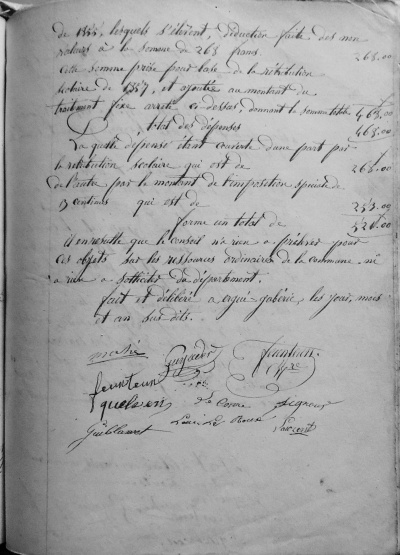 de 1855, lesquels s'élèvent, déduction faite des non
valeurs à la somme de 268 francs. 268.00
Cette somme prise pour base de la rétribution
scolaire de 1857, et ajoutée au montant du
traitement fixe arrêté ci-dessus, donnant la somme totale 468.00
total des dépenses 468.00
La quelle dépense étant couverte d'une part par
la rétribution scolaire qui est de 268.00
de l'autre par le montant de l'imposition spéciale de
3 centimes qui est de 253.00
forme un total de 521.00
il en resulte que le conseil n'a rien a préléver pour
ces objets sur les ressources ordinaires de la commune ni
a rien a solliciter du département.
fait et délibéré a ergué-gabéric, les jour, mois
et an susdits.
mahé
feunteun
Signour